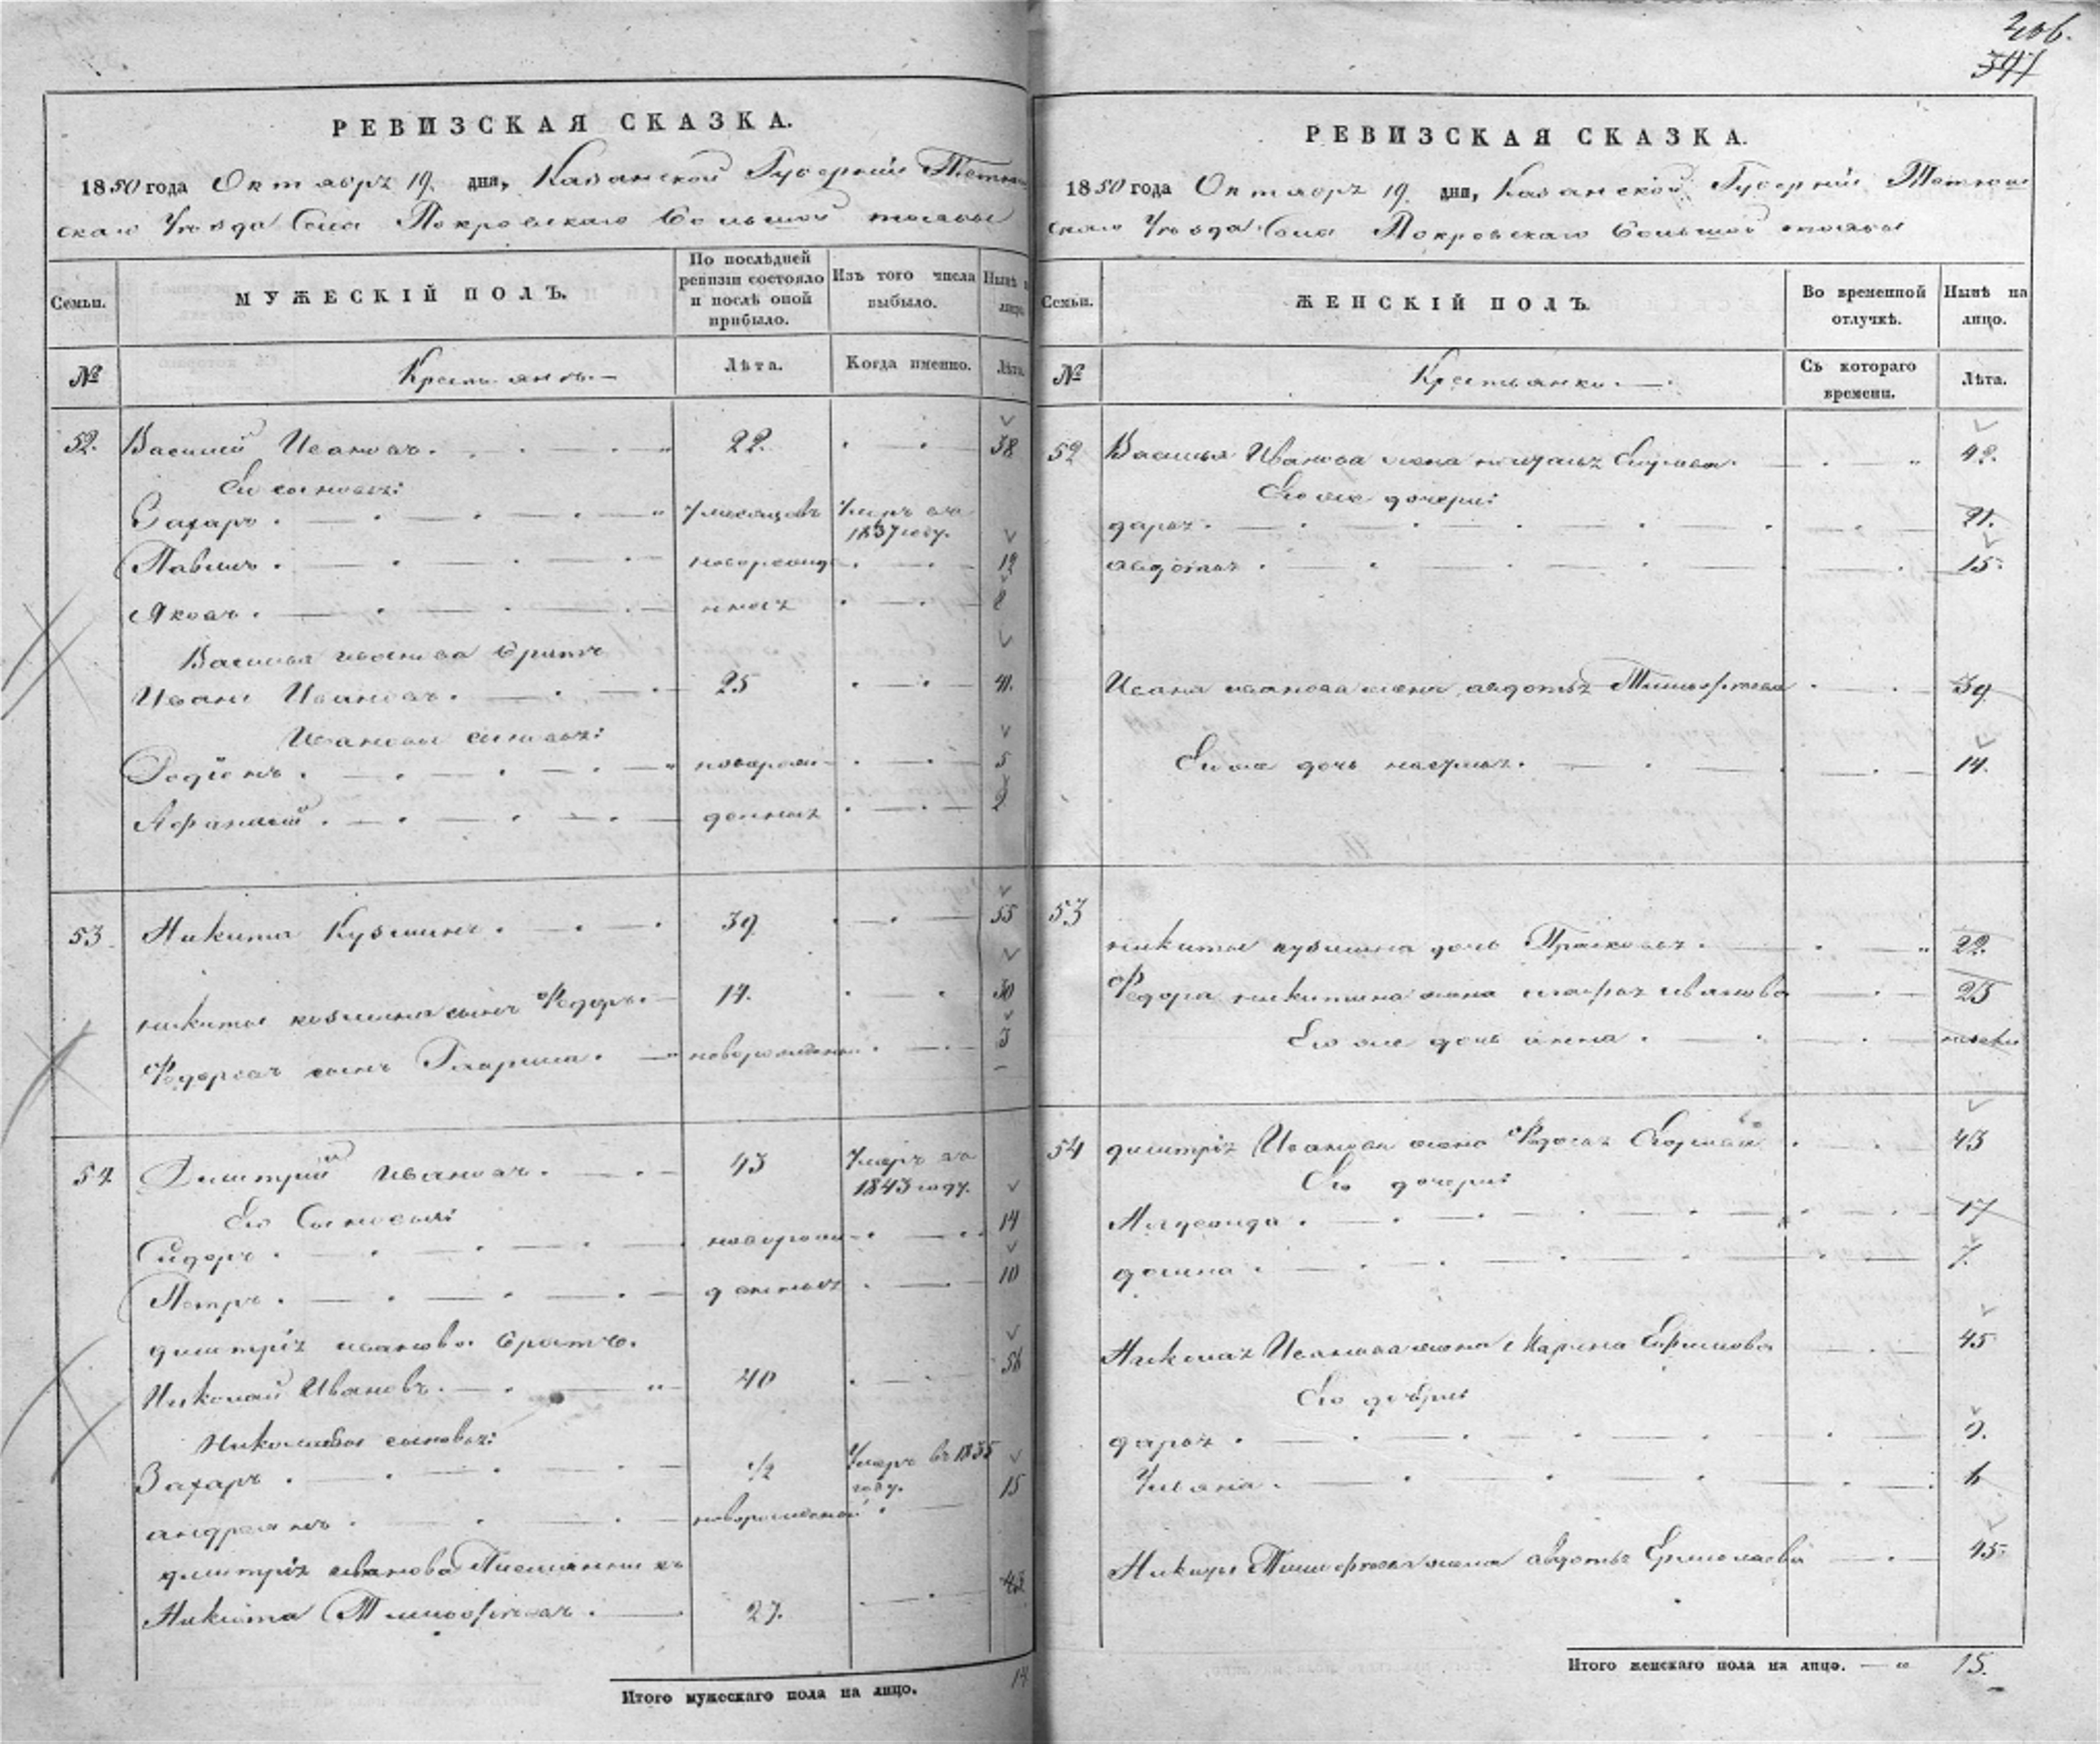 РЕВИЗСКАЯ СКАЗКА.
1850 года Октября 19. дня, Казанской Губернии Тетюш
скаго Уѣзда Села Покровскаго большой тоже
Семьи.
МУЖЕСКІЙ ПОЛЪ.
По послѣдней ревизіи состояло и послѣ оной прибыло.
Изъ того числа выбыло.
Нынѣ
№
Крестьянъ
Лѣта.
Когда именно.
Лѣта.
52. Василий Ивановъ. 22. 38
Ево сыновья:
Захаръ. 7 месяцовъ Умеръ въ 1837 году.
Павелъ. новорожд 12
Яковъ. нныя 8
Василья иванова братъ
Иванъ Ивановъ. 25 41.
Ивановы сыновья:
Родіонъ. новорож 5
Афанасий. денныя 2
53 Никита Кузминъ. 39 55
никиты козмина сынъ Федоръ. 14. 30
Федоровъ сынъ Гаврила. новорожденный 3
54. Дмитрий ивановъ. 43 Умеръ въ 1843 году.
Ево Сыновья:
Сидоръ. новорож 14
Петръ. денныя 10
дмитрія иванова братъ.
Николай Ивановъ. 40 56
Николаевы сыновья:
Захаръ. 1/2 Умеръ въ 1835 году.
андреянъ. новорожденной 15
дмитрія иванова Племянникъ
Никита Тимофеевъ. 27. 43
Итого мужескаго пола на лицо. 14
206.
347
РЕВИЗСКАЯ СКАЗКА.
1850 года Октября 19. дня, Казанской Губерніи Тетюш
скаго Уѣзда Села Покровскаго большой
Семьи.
ЖЕНСКІЙ ПОЛЪ.
Во временной отлучкѣ.
Нынѣ на лицо.
№
Крестьянки.
Съ котораго времени.
Лѣта.
52 Василья Иванова жена наталья 42.
Ево же дочери:
дарья. 21.
авдотья 15.
Ивана иванова жена авдотья Тимофеева 39
Ево же дочь наталья. 14.
53
никиты кузмина дочь Прасковья. 22.
Федора никитина жена иванова 25
Ево же дочь анна.
54 дмитрія Иванова жена Федосья 43
Ево дочери:
17
домна. 7.
Николая Иванова жена Марина Ефимова 45
Ево дочери
дарья. 9.
Ульяна. 6
Никиты Тимофеева жена авдотья Ермолаева 45.
Итого женскаго пола на лицо. 15.